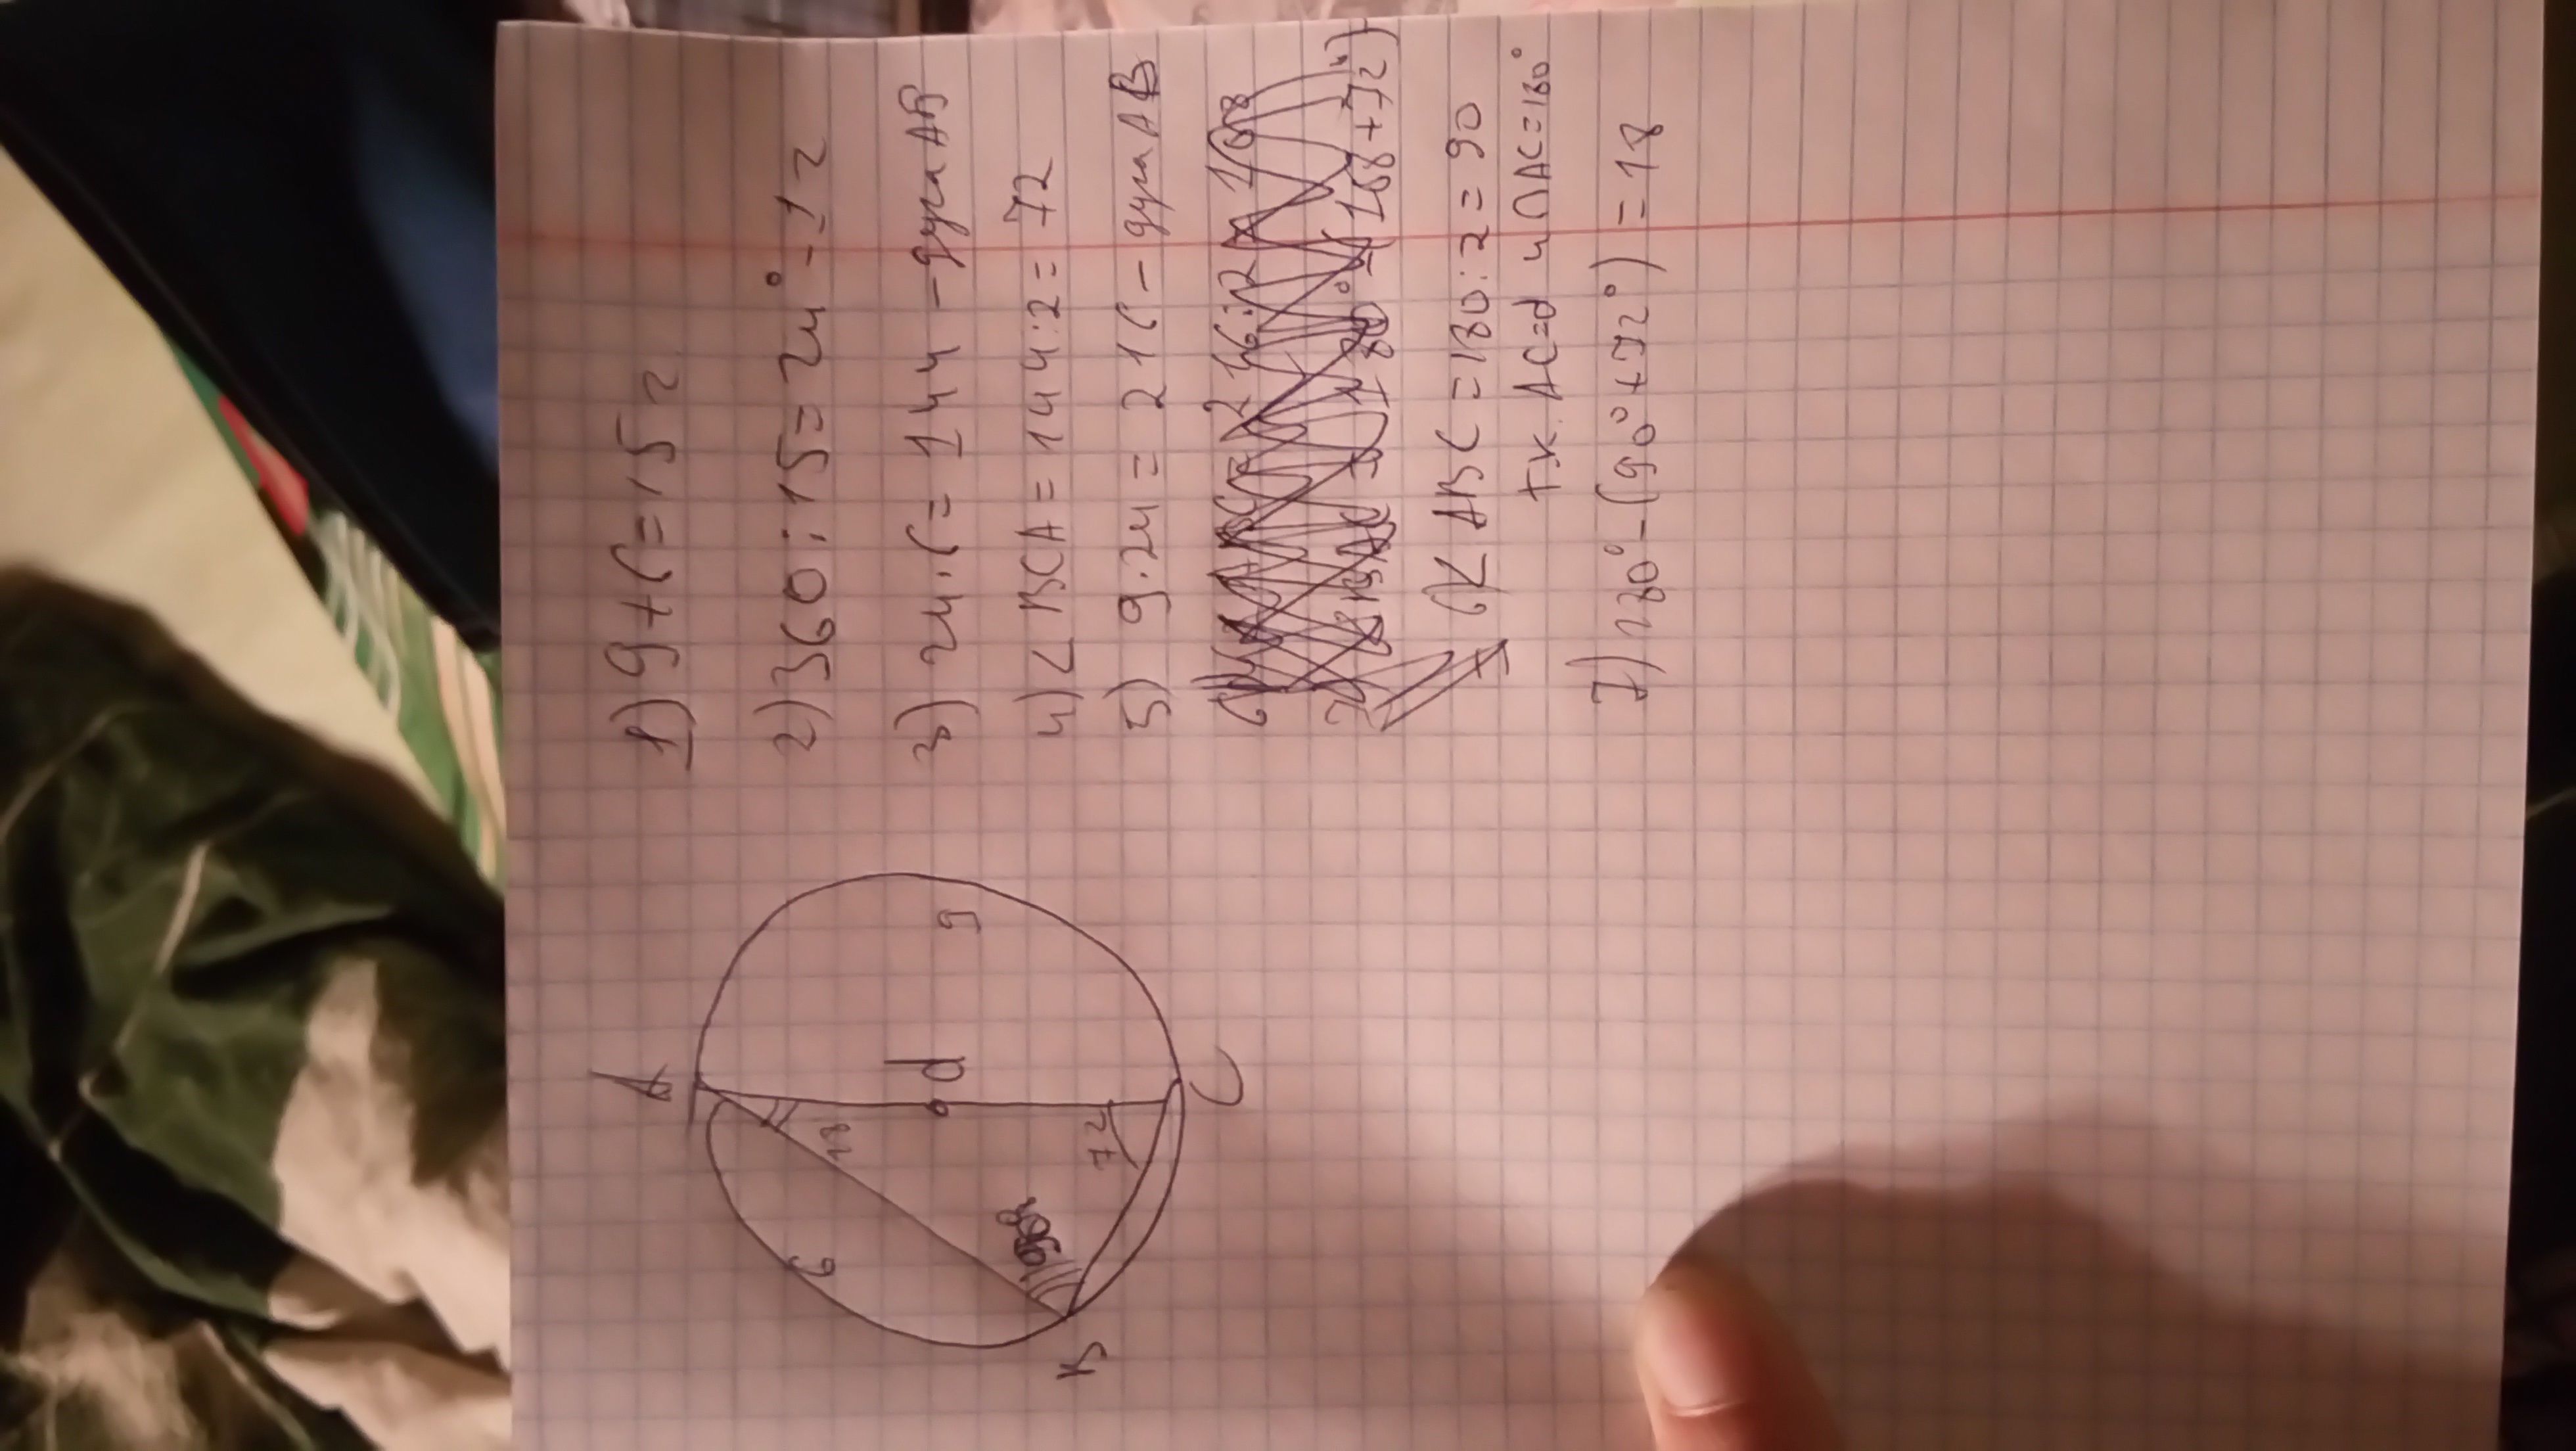 1) 9+6=15 г
2) 360:15=24°-1 г
3) 24·6=144 - дуга AB
4) < BCA = 144:2=72
5) 9·24 = 216 - дуга AB
6) < ABC = 180:2=90
т.к. AC=d и ∩AC=180°
7) 180°-(90°+72°)=18
A
9
d
18
6
72
C
B